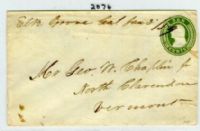 2076
Elk Grove Cal Jan 3
Mr Geo. W. Chaplin Jr
North Clarendon
Vermont